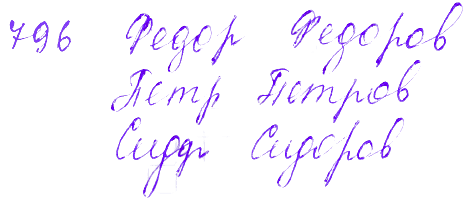 796 Федор Федоров
Петр Петров
Сидор Сидоров